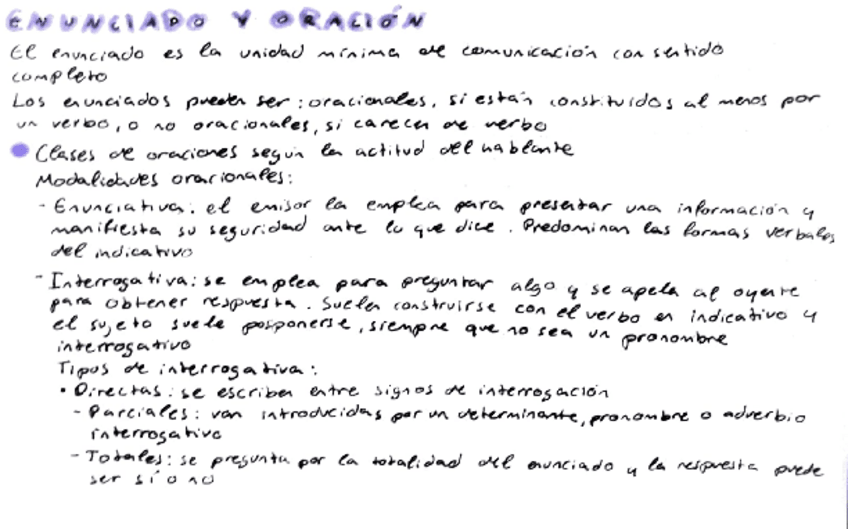 ENUNCIADO Y ORACIÓN
El enunciado es la unidad mínima de comunicación con sentido
completo
Los enunciados pueden ser: oracionales, si están constituidos al menos por
un verbo, o no oracionales, si carecen de verbo
Clases de oraciones según la actitud del hablante
Modalidades oracionales:
- Enunciativa: el emisor la emplea para presentar una información y
manifiesta su seguridad ante lo que dice. Predominan las formas verbales
del indicativo
- Interrogativa: se emplea para preguntar algo y se apela al oyente
para obtener respuesta. Suelen construirse con el verbo en indicativo y
el sujeto suele posponerse, siempre que no sea un pronombre
interrogativo
Tipos de interrogativa:
• Directas: se escriben entre signos de interrogación
- Parciales: van introducidas por un determinante, pronombre o adverbio
interrogativo
- Totales: se pregunta por la totalidad del enunciado y la respuesta puede
ser sí o no